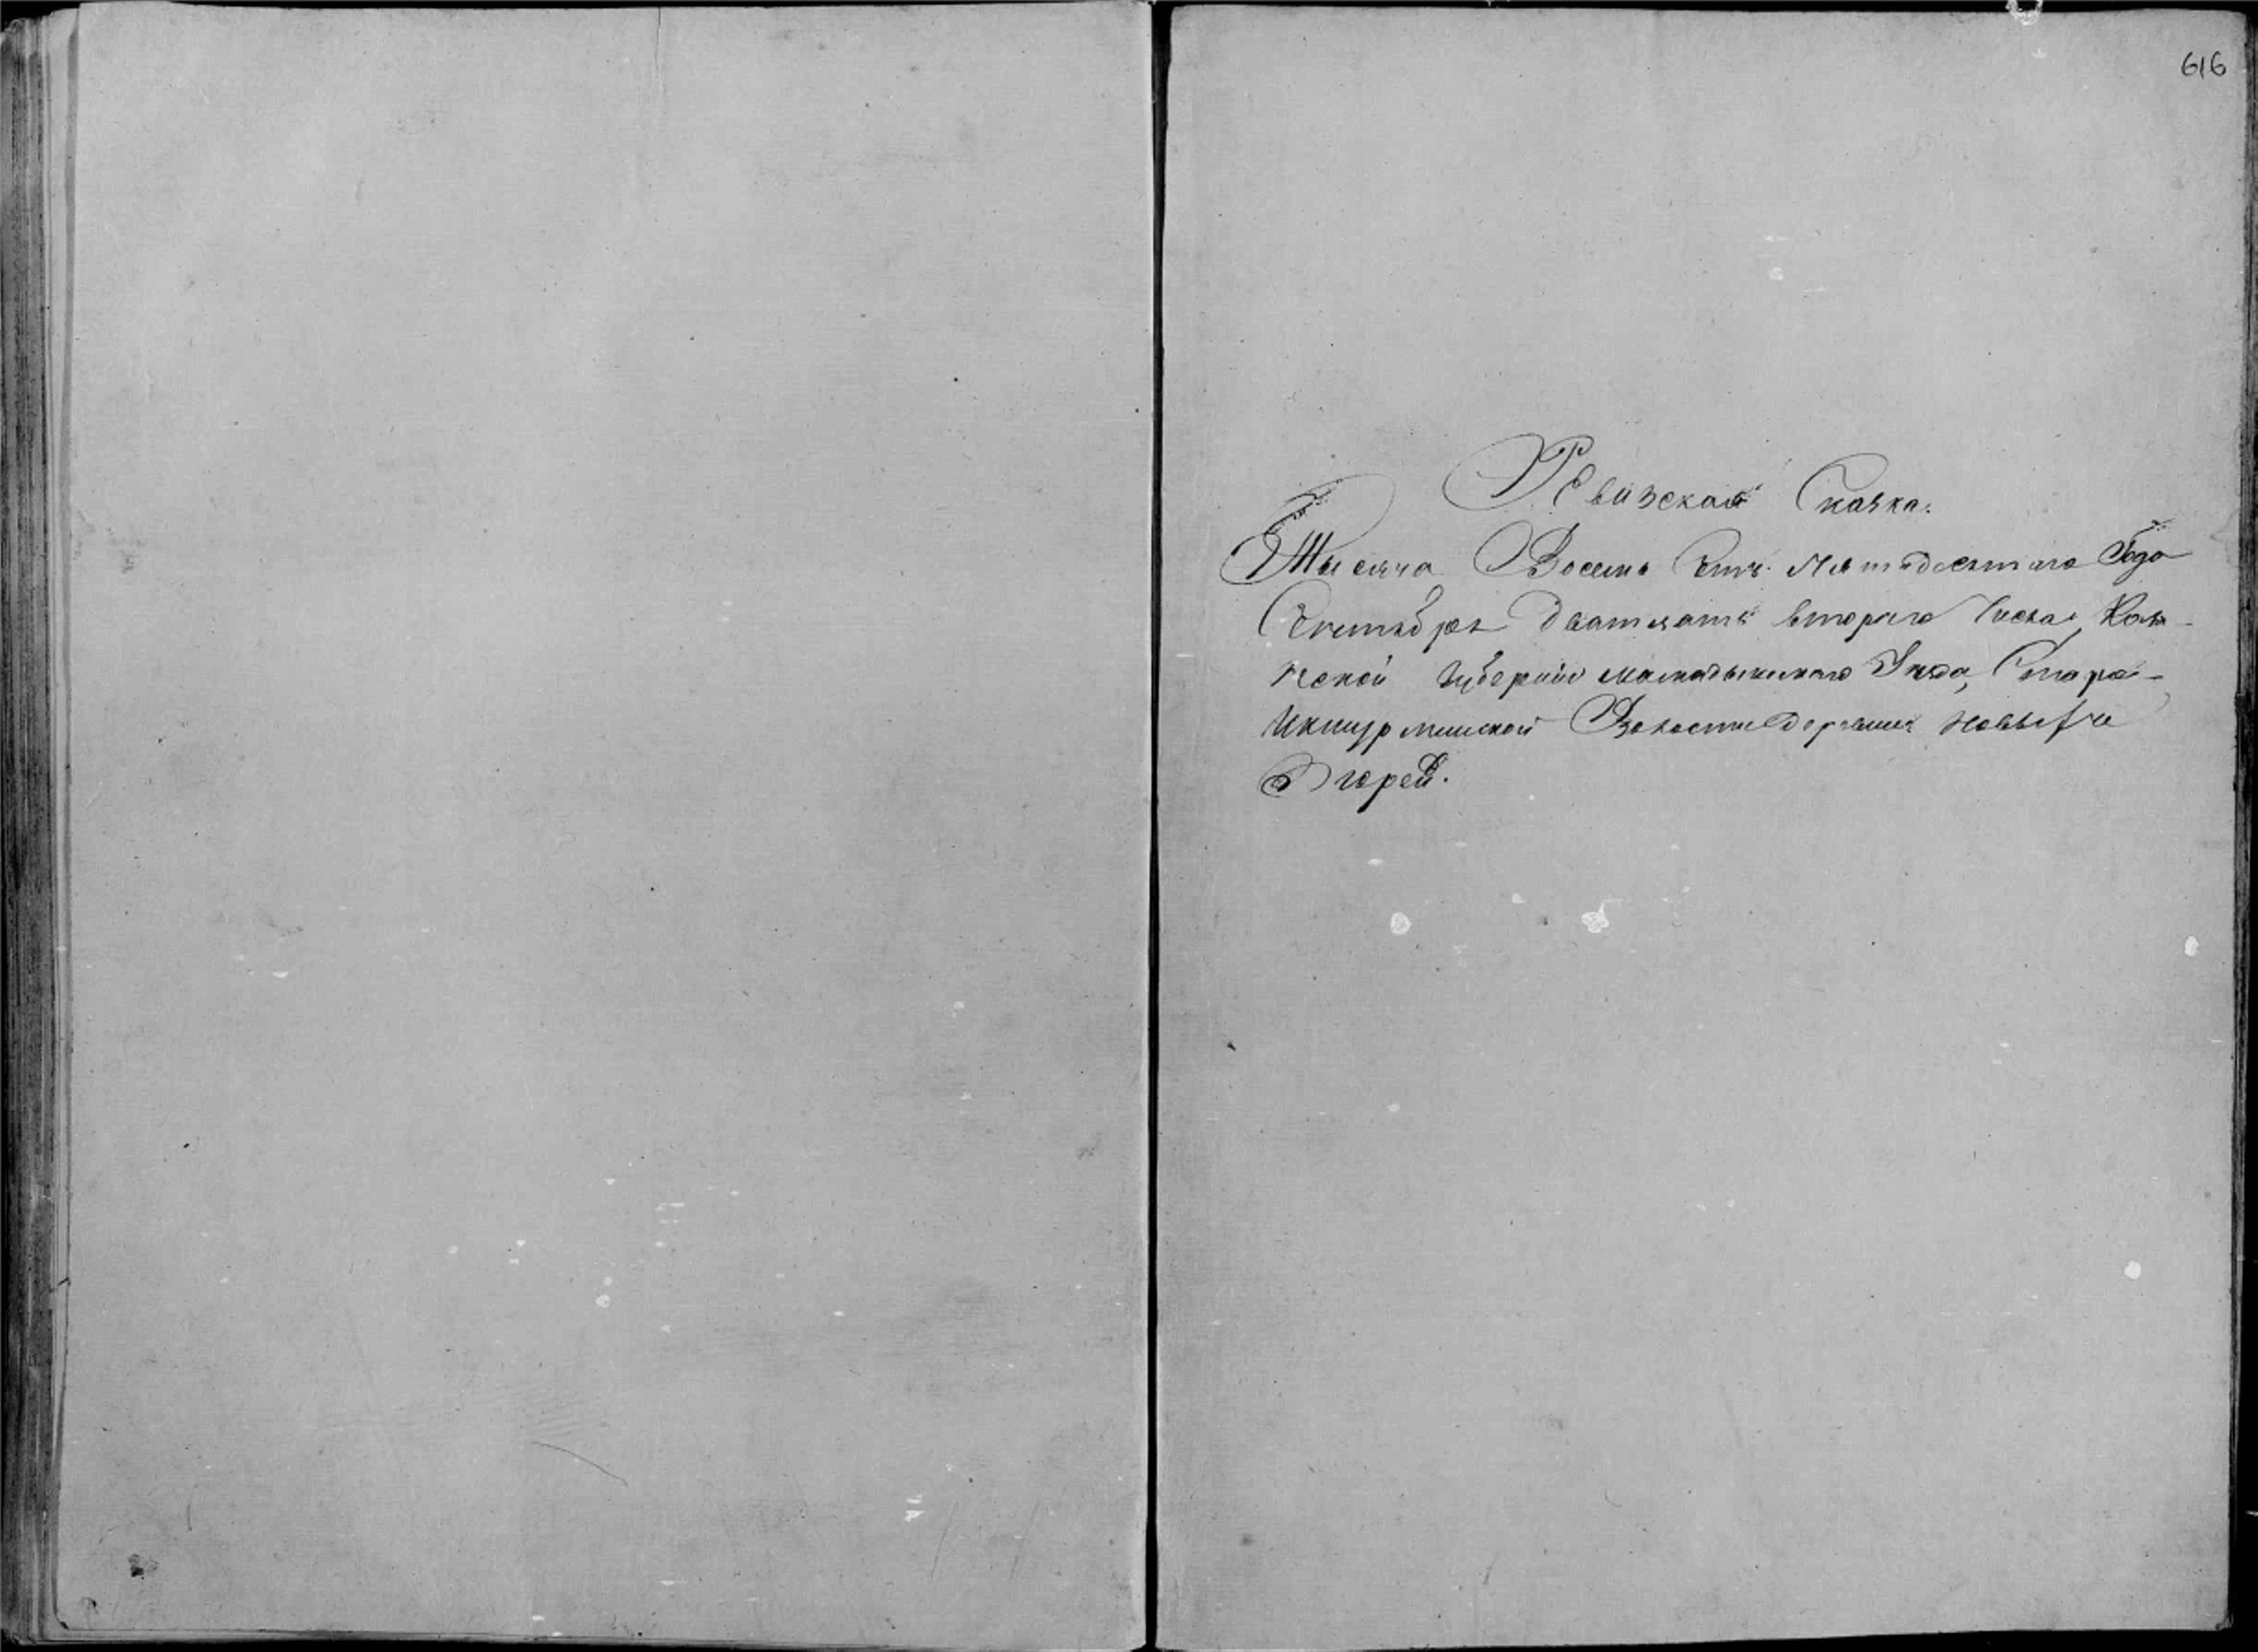 616
Ревизская Сказка.
Тысяча Восемь Сотъ Пятьдесятаго Года
Сентября Дватцать втораго Числа, Казан-
ской Губернии мамадышскаго Уезда, Старо-
Икшурминской Волости Деревни